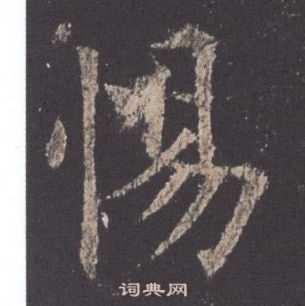 惕
词典网